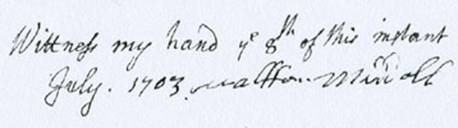 Wittness my hand ye 8th of this instant
July. 1703